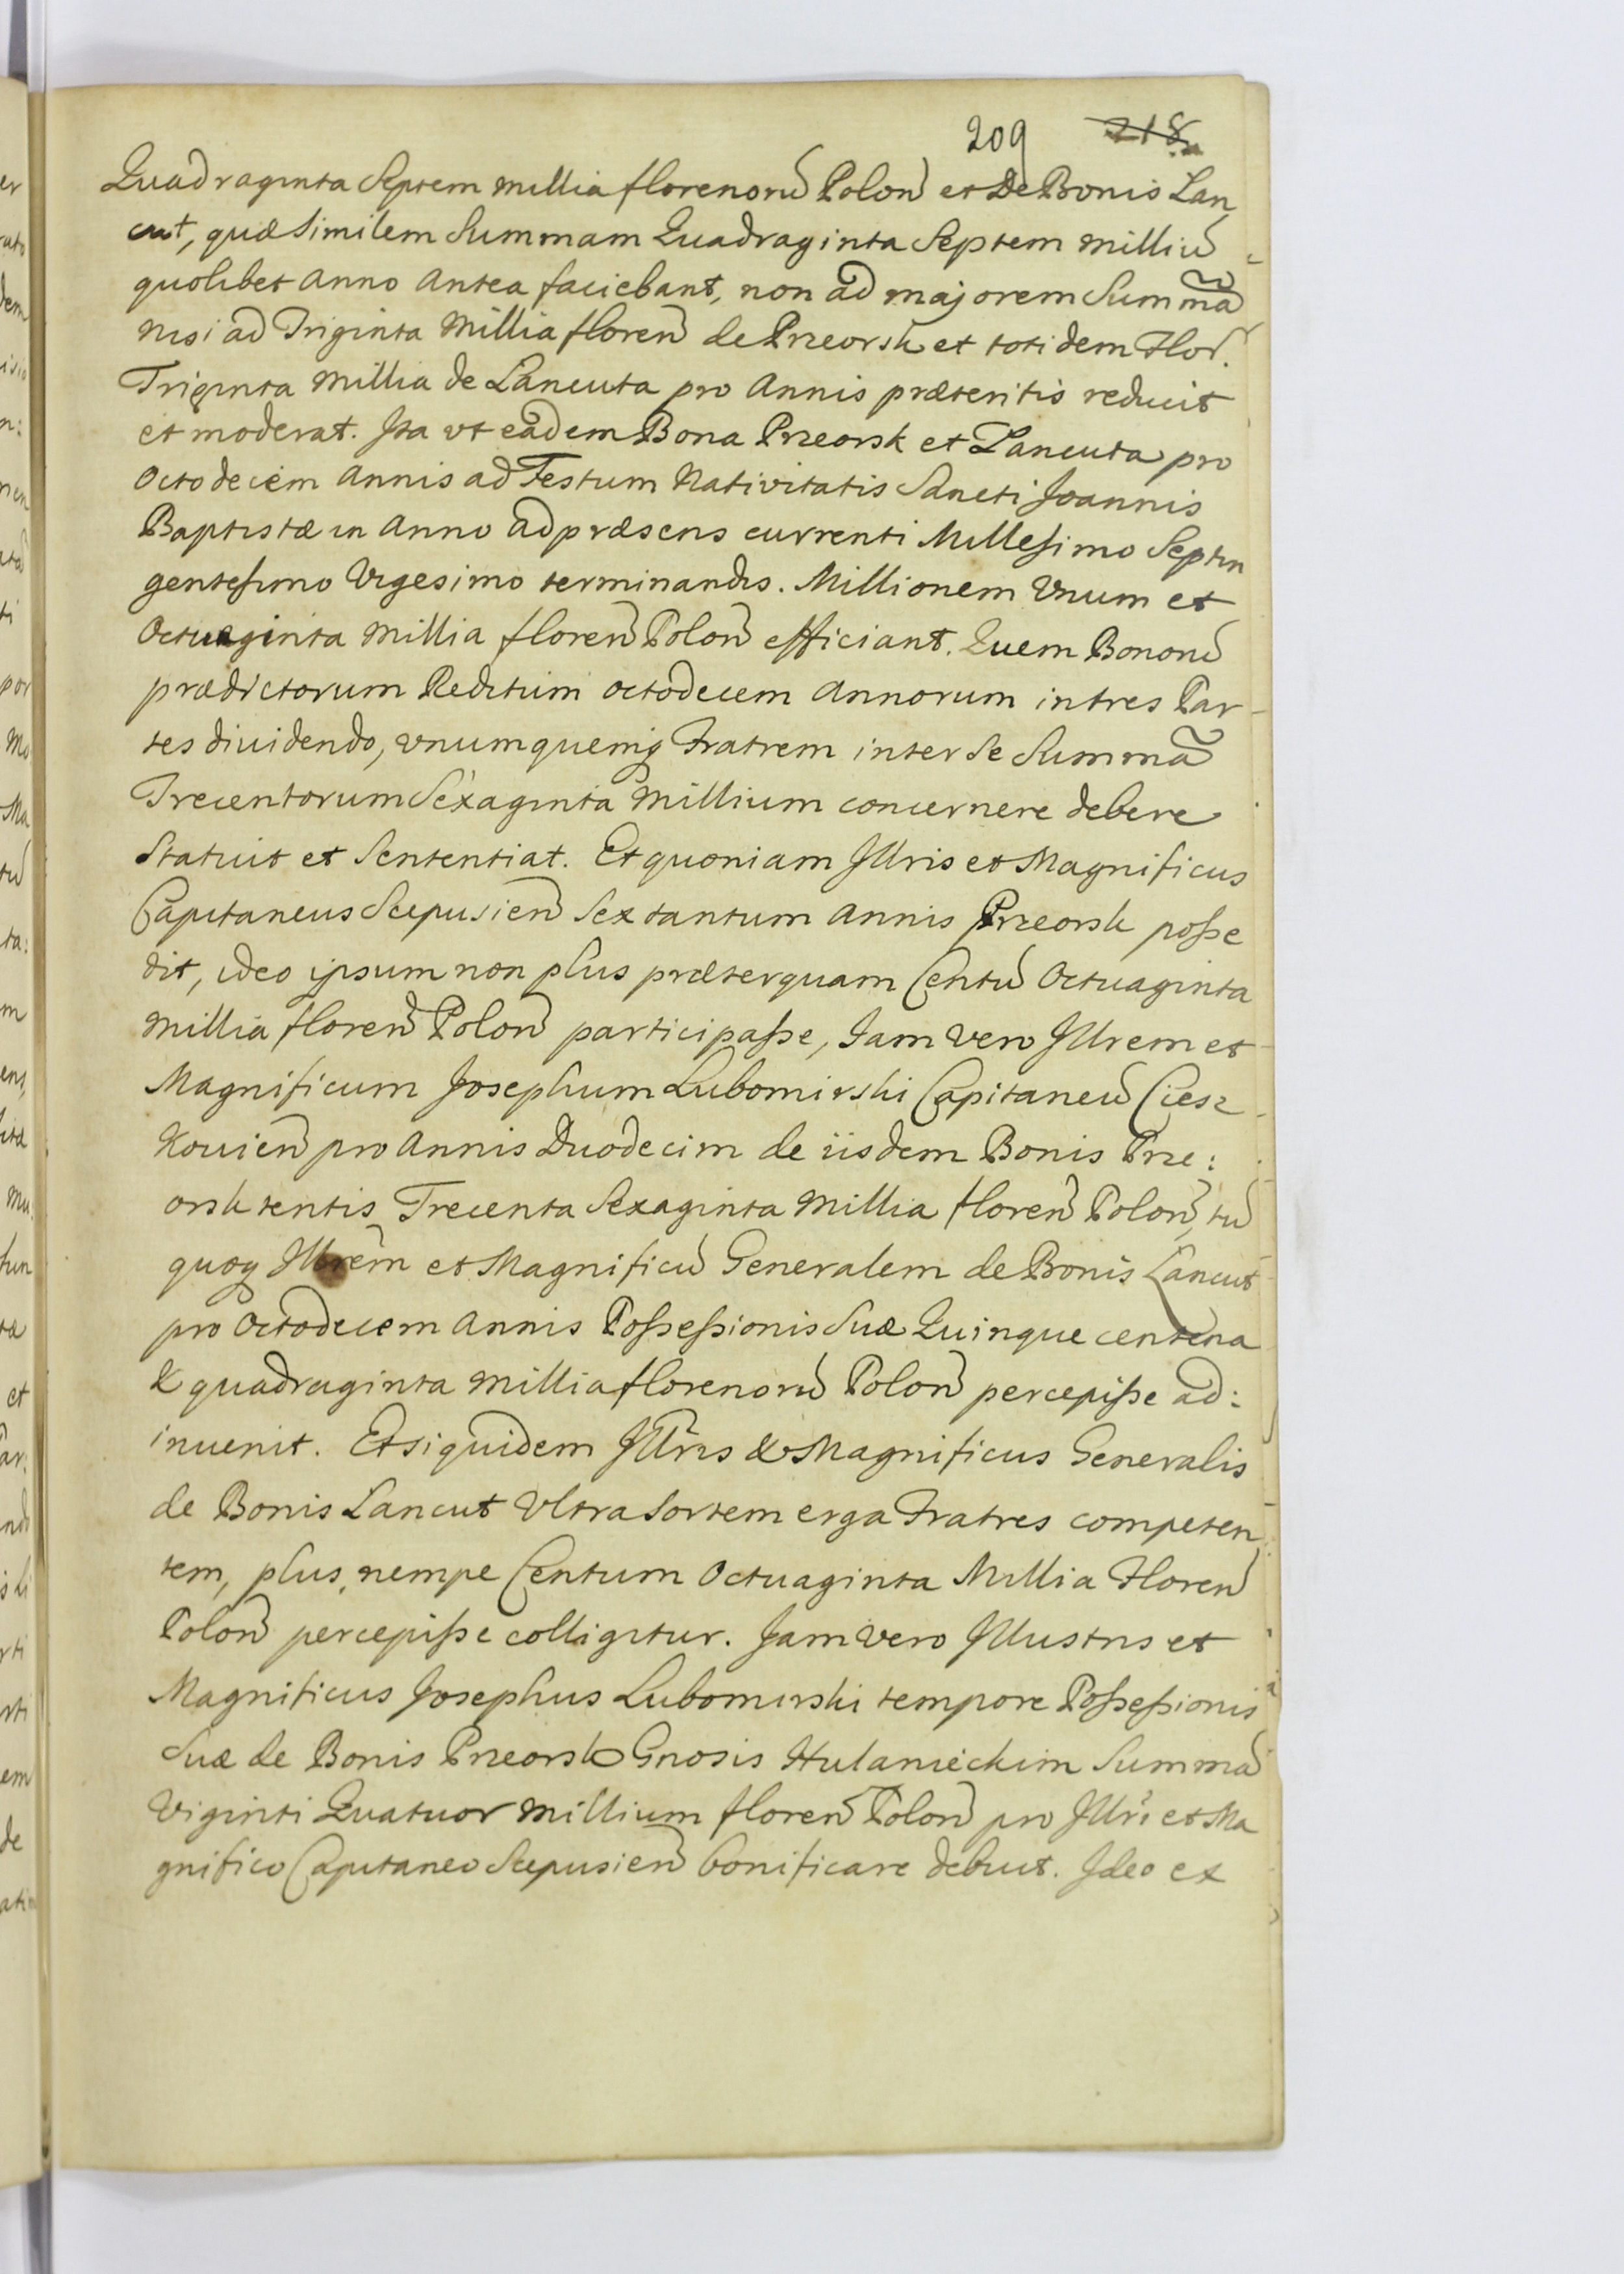 209 218
Quadraginta Septem millia florenorũ Polon̄ et De Bonis Lan
cut, quæ similem Summam Quadraginta Septem milliũ
quolibet Anno Antea faciebant, non ad majorem Sum̃mã
nisi ad Triginta Millia floren̄ de Przeorsk et totidem Flor̄.
Triginta Millia de Lancuta pro Annis præteritis reducit
et moderat. Ita vt eadem Bona Przeorsk et Lancuta pro
Octodecem Annis ad Festum Nativitatis Sancti Joannis
Baptistæ in Anno ad præsens currenti Millesimo Septin
gentesimo Vigesimo terminandis. Millionem Vnum et
Octuaginta Millia floren̄ Polon̄ efficiant. Quem Bonorũ
prædictorum Reditum octodecem Annorum in tres Par
tes diuidendo, vnumquemq Fratrem inter se Summã
Trecentorum Sexaginta Millium concernere debere
Statuit et Sententiat. Et quoniam Jllris et Magnificus
Capitaneus Scepusien̄ Sex tantum Annis Przeorsk posse
dit, ideo ipsum non plus præterquam Centũ Octuaginta
Millia floren̄ Polon̄ participasse, Jam vero Jllrem et
Magnificum Josephum Lubomirski Capitaneũ Ciesz
kouien̄ pro Annis Duodecim de iisdem Bonis Prze:
orsk tentis Trecenta Sexaginta Millia floren̄ Polon̄, tũ
quoq Jllrem̄ et Magnificũ Generalem de Bonis Lancut
pro Octodecem Annis Possessionis Suæ Quinque centena
& quadraginta Millia florenorũ Polon̄ percepisse ad:
inuenit. Et siquidem Jllr̄is & Magnificus Generalis
de Bonis Lancut Vltra Sortem erga Fratres competen
tem, plus nempe Centum Octuaginta Millia Floren̄
Polon̄ percepisse colligitur. Jam vero Jllustris et
Magnificus Josephus Lubomirski tempore Possessionis
Suæ de Bonis Przeorsk Gnosis Hulanieckim Summã
Viginti Quatuor Millium floren̄ Polon̄ pro Jllr̄i et Ma
gnifico Capitaneo Scepusien̄ bonificare debuit. Jdeo ex